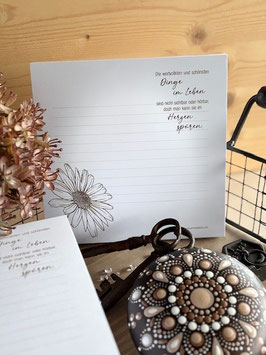 Die wertvollsten und schönsten
Dinge
im Leben
sind nicht sichtbar oder hörbar,
doch man kann sie im
Herzen
spüren.
Dinge
im Leben
Herzen
spüren.